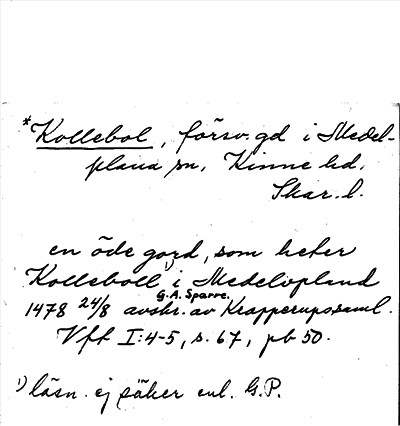 *Kollebol, försv. gd i Medel-
plana sn, Kinne hd,
Skar. l.
en öde gord, som heter
Kolleboll¹⁾ i Medelvpland
G.A. Sparre.
1478 24/8 avskr. av Krapperupssaml.
Vft I:4-5, s. 67, pb 50.
¹⁾ läsn. ej säker enl. G.P.